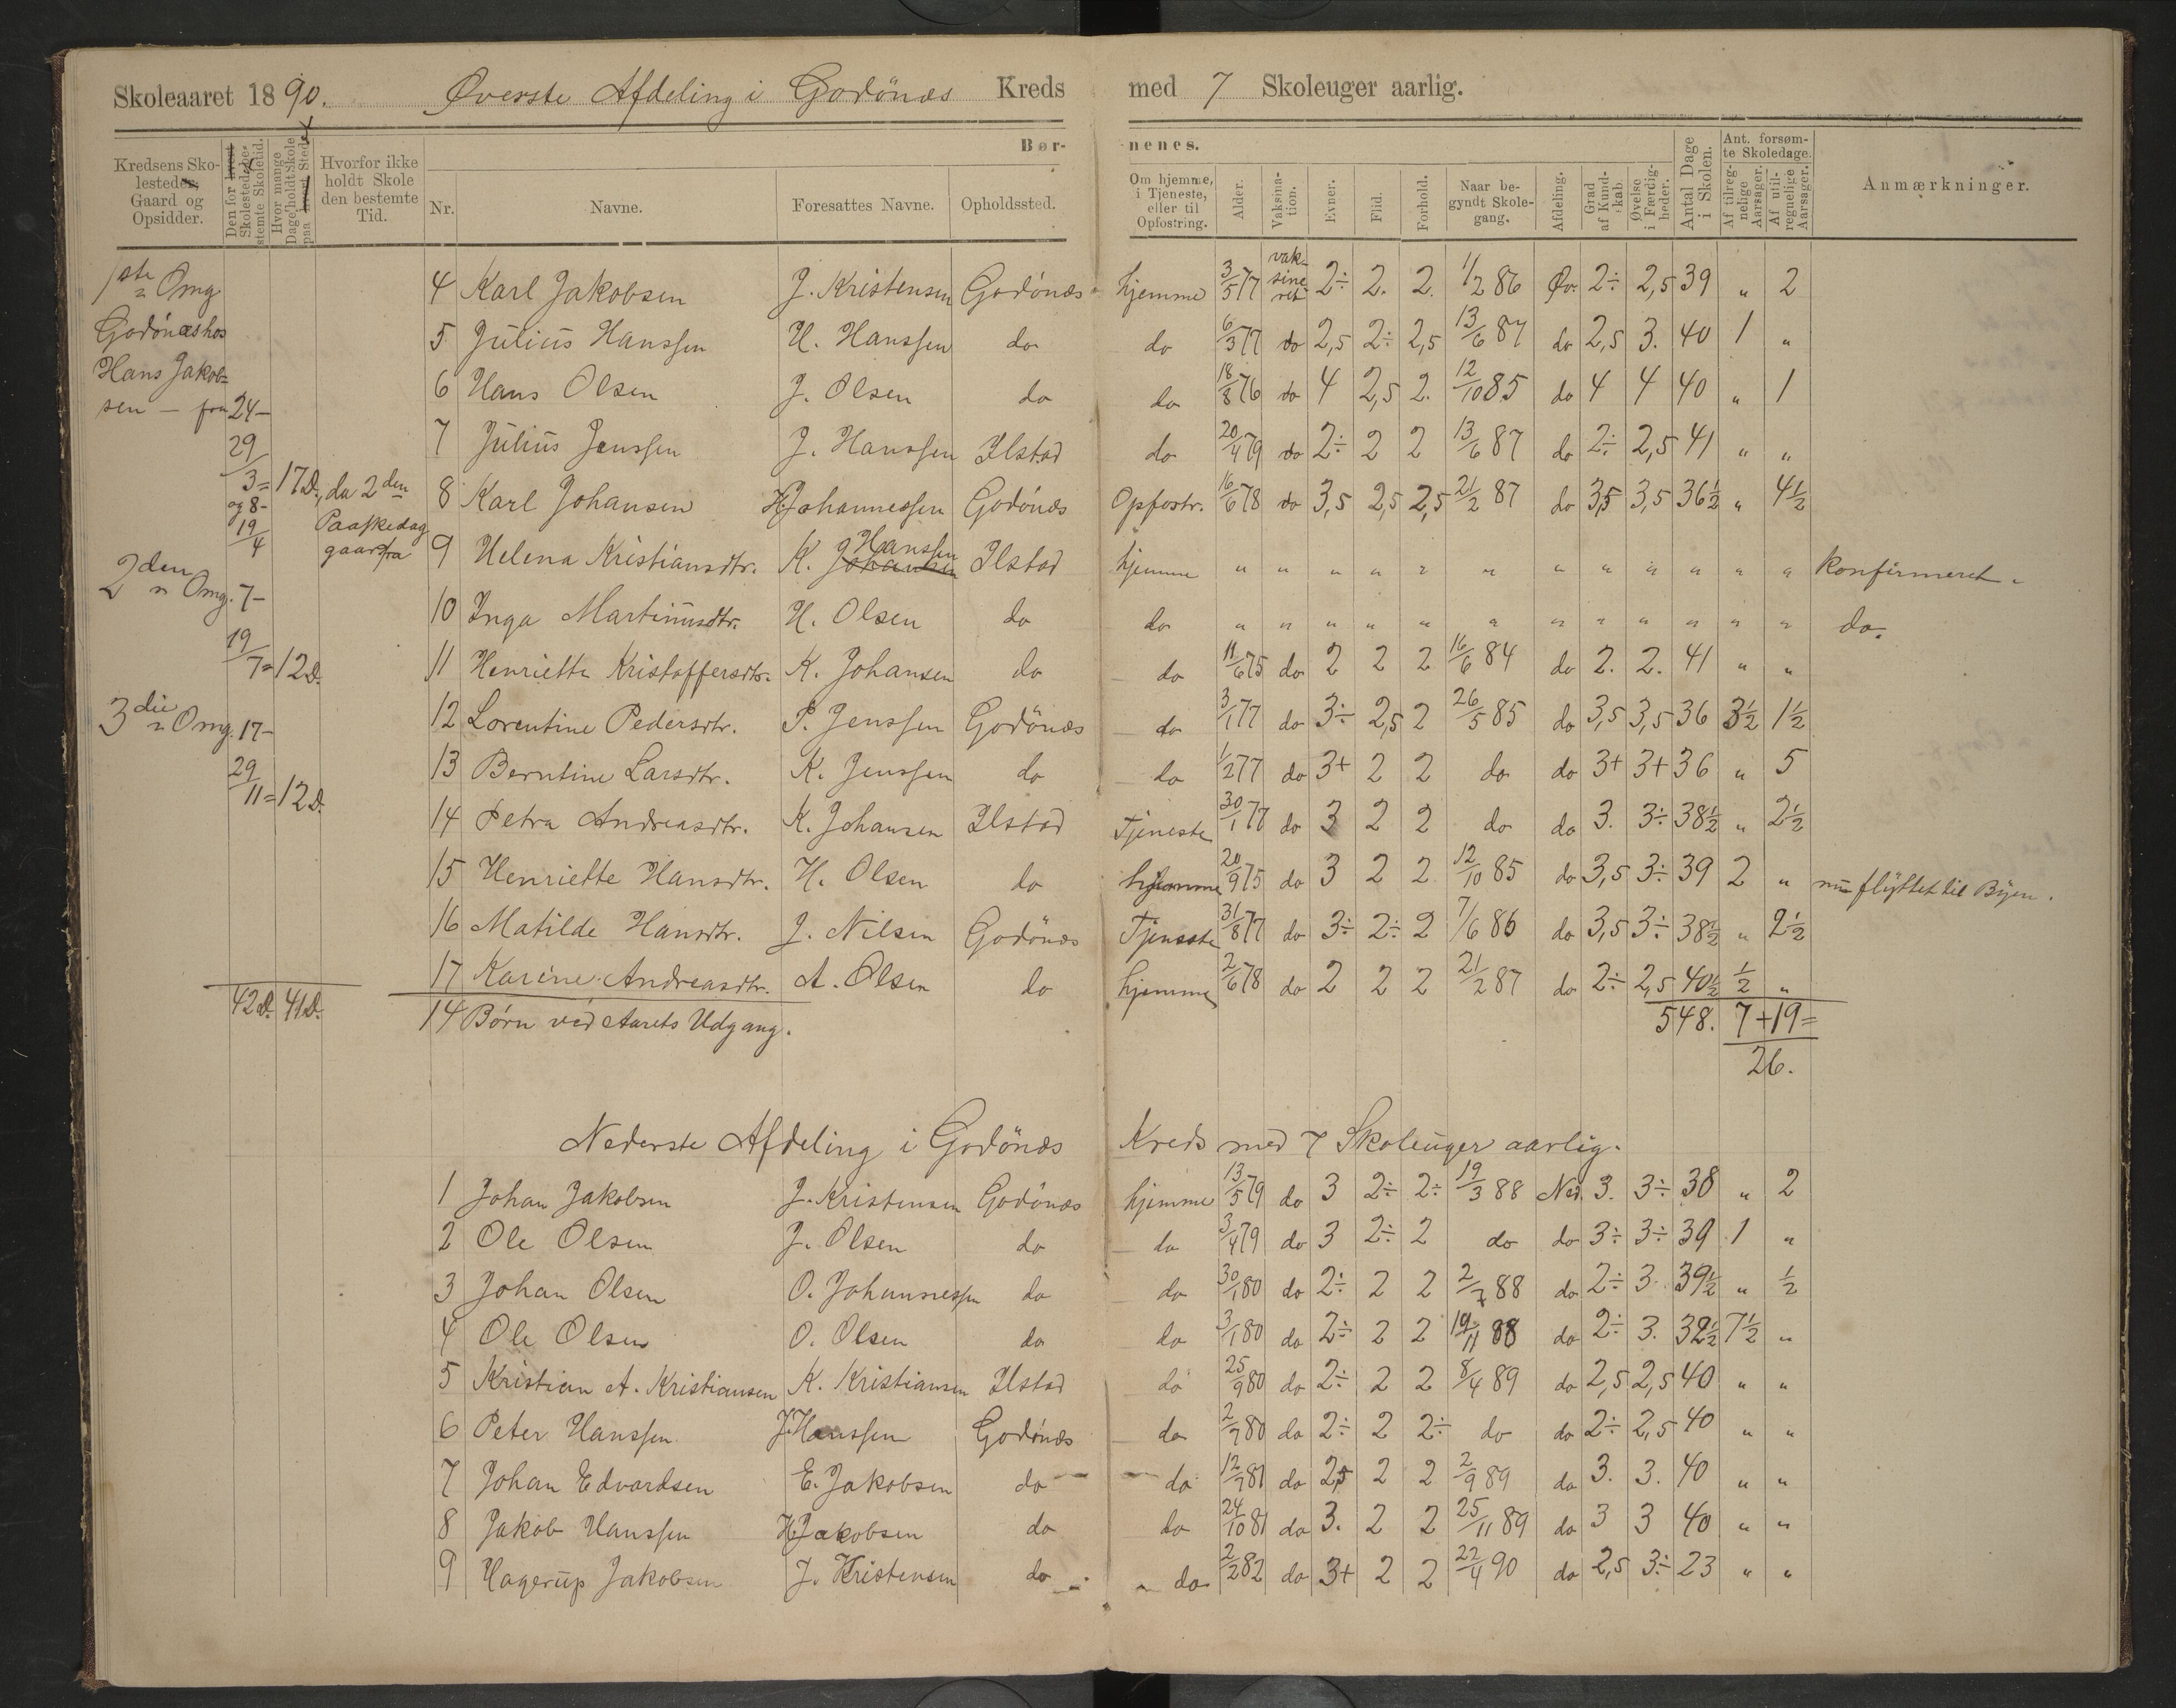 Skoleaaret 1890. Øverste Afdeling i Godönæs Kreds med 7 Skoleuger aarlig.
Kredsens Skolesteder, Gaard og Opsidder. Den for hvert Skolestede bestemte Skoletid. Hvor mange Dage holdt Skole paa hvert Sted. Hvorfor ikke holdt Skole den bestemte Tid. Børnenes. Ant. forsømte Skoledage.
Nr. Navne. Foresattes Navne. Opholdssted. Om hjemme, i Tjeneste, eller til Opfostring. Alder. Vaksination. Evner. Flid. Forhold. Naar begyndt Skolegang. Afdeling. Grad af Kundskab. Øvelse i Færdigheder. Antal Dage i Skolen. Af tilregnelige Aarsager. Af utilregnelige Aarsager. Anmærkninger.
1ste " Omg.
Godönæs hos
Hans Jakob=
sen — fra 24–
29/3 = 17 D., da 2den
og 8– Paaskedag
19/4 gaar fra
2den " Omg. 7–
19/7 = 12 D.
3die " Omg. 17–
29/11 = 12 D.
42 D. 41 D.
4 Karl Jakobsen J. Kristensen Godönæs hjemme 3/5 77 vaksineret 2÷ 2. 2. 1/2 86 Øv. 2÷ 2,5 39 " 2
5 Julius Hanssen H. Hanssen do do 6/3 77 do 2,5 2÷ 2,5 13/6 87 do 2,5 3. 40 1 "
6 Hans Olsen J. Olsen do do 18/8 76 do 4 2,5 2. 12/10 85 do 4 4 40 " 1
7 Julius Jenssen J. Hanssen Ilstad do 20/4 79 do 2÷ 2 2 13/6 87 do 2÷ 2,5 41 " "
8 Karl Johansen H. Johannessen Godönæs Opfostr. 16/6 78 do 3,5 2,5 2,5 21/2 87 do 3,5 3,5 36½ " 4½
9 Helena Kristiansdtr. K. Johansen Hanssen Ilstad hjemme " " " " " " " " " " " " konfirmeret "
10 Inga Martinusdtr. H. Olsen do do " " " " " " " " " " " " do.
11 Henriette Kristoffersdtr. K. Johansen do do 11/6 75 do 2 2 2 16/6 84 do 2. 2. 41 " "
12 Lorentine Pedersdtr. P. Jenssen Godönæs do 3/1 77 do 3÷ 2,5 2 26/5 85 do 3,5 3,5 36 3½ 1½
13 Berntine Larsdtr. K. Jenssen do do 1/2 77 do 3+ 2 2 do do 3+ 3+ 36 " 5
14 Petra Andreasdtr. K. Johansen Ilstad Tjeneste 30/1 77 do 3 2 2 do do 3. 3÷ 38½ " 2½
15 Henriette Hansdtr. H. Olsen do hjemme 20/9 75 do 3 2 2 12/10 85 do 3,5 3÷ 39 2 " nu flyttet til Byen.
16 Matilde Hansdtr. J. Nilsen Godönæs Tjeneste 31/8 77 do 3÷ 2÷ 2 7/6 86 do 3,5 3÷ 38½ " 2½
17 Karine Andreasdtr. A. Olsen do hjemme 2/6 78 do 2 2 2 21/2 87 do 2÷ 2,5 40½ ½ "
14 Børn ved Aarets Udgang. 548. 7+19=
26.
Nederste Afdeling i Godönæs Kreds med 7 Skoleuger aarlig.
1 Johan Jakobsen J. Kristensen Godönæs hjemme 13/5 79 do 3 2÷ 2÷ 19/3 88 Ned. 3. 3÷ 38 " 2
2 Ole Olsen J. Olsen do do 3/4 79 do 3 2÷ 2 do do 3÷ 3÷ 39 1 "
3 Johan Olsen O. Johannessen do do 30/1 80 do 2÷ 2 2 2/7 88 do 2÷ 3. 39½ " ½
4 Ole Olsen O. Olsen do do 3/1 80 do 2÷ 2 2 19/11 88 do 2÷ 3. 32½ 7½ "
5 Kristian A. Kristiansen K. Kristiansen Ilstad do 25/9 80 do 2÷ 2 2 8/4 89 do 2,5 2,5 40 " "
6 Peter Hanssen J. Hanssen Godönæs do 2/7 80 do 2÷ 2 2÷ do do 2÷ 2,5 40 " "
7 Johan Edvardsen E. Jakobsen do do 12/7 81 do 2,5 2 2 2/9 89 do 3. 3. 40 " "
8 Jakob Hanssen H. Jakobsen do do 24/10 81 do 3. 2 2 25/11 89 do 3 3 40 " "
9 Hagerup Jakobsen J. Kristensen do do 2/2 82 do 3+ 2 2 22/4 90 do 2,5 3÷ 23 " "